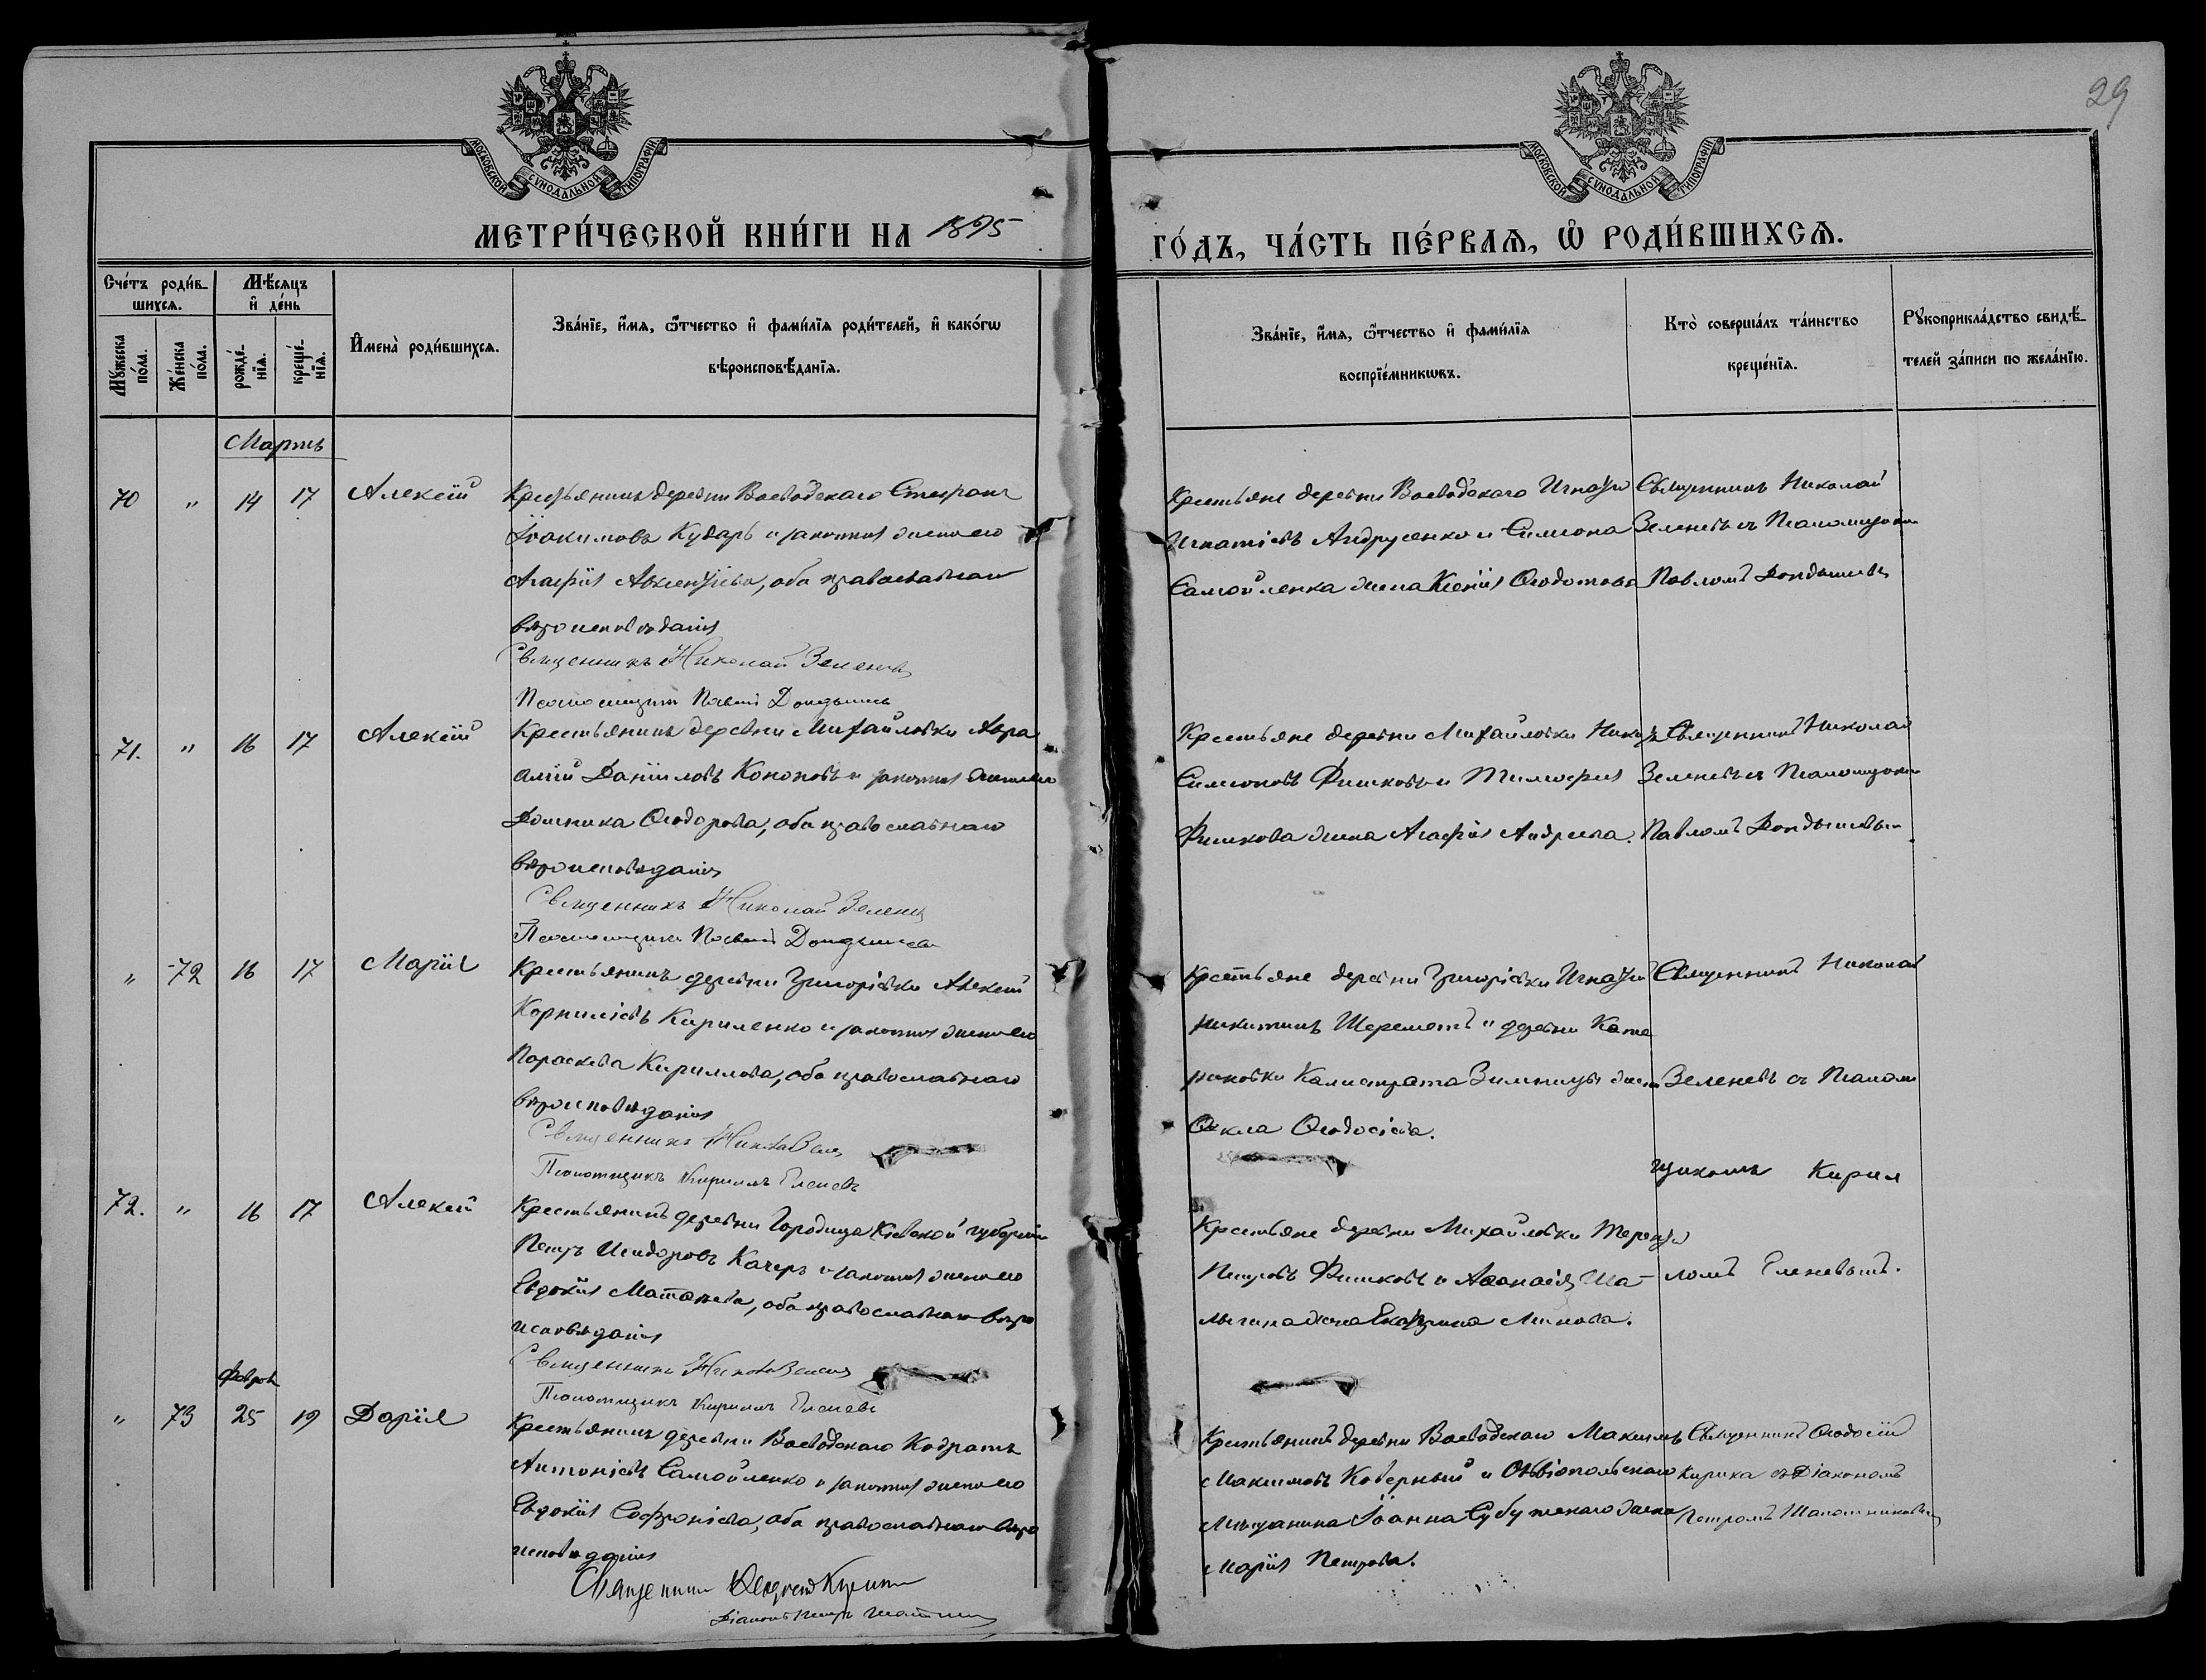 29
МОСКОВСКОЙ СѴНОДАЛЬНОЙ ТИПОГРАФІИ
МОСКОВСКОЙ СѴНОДАЛЬНОЙ ТИПОГРАФІИ
МЕТРИ́ЧЕСКОЙ КНИ́ГИ НА 1895
ГО́ДЪ, ЧА́СТЬ ПЕ́РВАѦ, Ѽ РОДИ́ВШИХСѦ.
Сче́тъ роди́в-
шихсѧ.
Мꙋ́жеска по́ла.
Же́нска по́ла.
Мѣ́сѧцъ
и҆ де́нь
рожде́-нїѧ.
креще́-нїѧ.
И҆мена̀ роди́вшихсѧ.
Зва́нїе, и҆́мѧ, ѻ҆́тчество и҆ фами́лїѧ роди́телей, и҆ како́гѡ
вѣроисповѣ́данїѧ.
Зва́нїе, и҆́мѧ, ѻ҆́тчество и҆ фами́лїѧ
воспрїе́мникѡвъ.
Кто̀ соверша́лъ та́инство
креще́нїѧ.
Рꙋкоприкла́дство свидѣ́-
телей за́писи по жела́нїю.
Мартъ
70 " 14 17 Алексій
Крестьянинъ деревни Воеводскаго Стефанъ
Іоакимовъ Кударь и законная жена его
Агафія Авксентіева, оба православнаго
вѣроисповѣданія
Священникъ Николай Зеленевъ
Псаломщикъ Павелъ Дондышевъ
Крестьяне деревни Воеводскаго Игнатій
Игнатіевъ Андрусенко и Симеона
Самойленка жена Ксенія Ѳеодотова
Священникъ Николай
Зеленевъ съ Псаломщикомъ
Павломъ Дондышевымъ
71. " 16 17 Алексій
Крестьянинъ деревни Михайловки Авра
амій Даніиловъ Кононовъ и законная жена его
Домника Ѳеодорова, оба православнаго
вѣроисповѣданія
Священникъ Николай Зеленевъ
Псаломщикъ Павелъ Дондышевъ
Крестьяне деревни Михайловки
Симеоновъ Фишковъ и Тимофея
Фишкова жена Агафія Андреева.
Священникъ Николай
Зеленевъ съ Псаломщикомъ
Павломъ Дондышевымъ.
" 72 16 17 Марія
Крестьянинъ деревни Григорьевки Алексій
Корниліевъ Кириленко и законная жена его
Параскева Кириллова, оба православнаго
вѣроисповѣданія
Священникъ
Псаломщикъ Кириллъ Еленевъ
Крестьяне деревни Григорьевки Игнатій
Никитинъ Шереметъ и деревни Кате
риновки Калистрата жена
Ѳекла Ѳеодосіева.
Священникъ Николай
Зеленевъ съ Псалом
щикомъ Кирил
ломъ Еленевымъ.
72. " 16 17 Алексій
Крестьянинъ деревни Городища Кіевской губерніи
Петръ Исидоровъ Качеръ и законная жена его
Евдокія Матѳеева, оба православнаго вѣро
исповѣданія
Священникъ
Псаломщикъ Кириллъ Еленевъ
Крестьяне деревни Михайловки Терентій
Петровъ Фишковъ и Аѳанасія
жена Екатерина
Феврал
" 73 25 19 Дарія
Крестьянинъ деревни Воеводскаго Кодратъ
Антоніевъ Самойленко и законная жена его
Евдокія Софроніева, оба православнаго вѣро
исповѣданія
Священникъ Ѳеодосій Кирика
Діаконъ Петръ
Крестьянинъ деревни Воеводскаго Максимъ
Максимовъ Коверный и Овидіопольскаго
Мѣщанина Іоанна жена
Марія Петрова.
Священникъ Ѳеодосій
Кирика съ Діакономъ
Петромъ